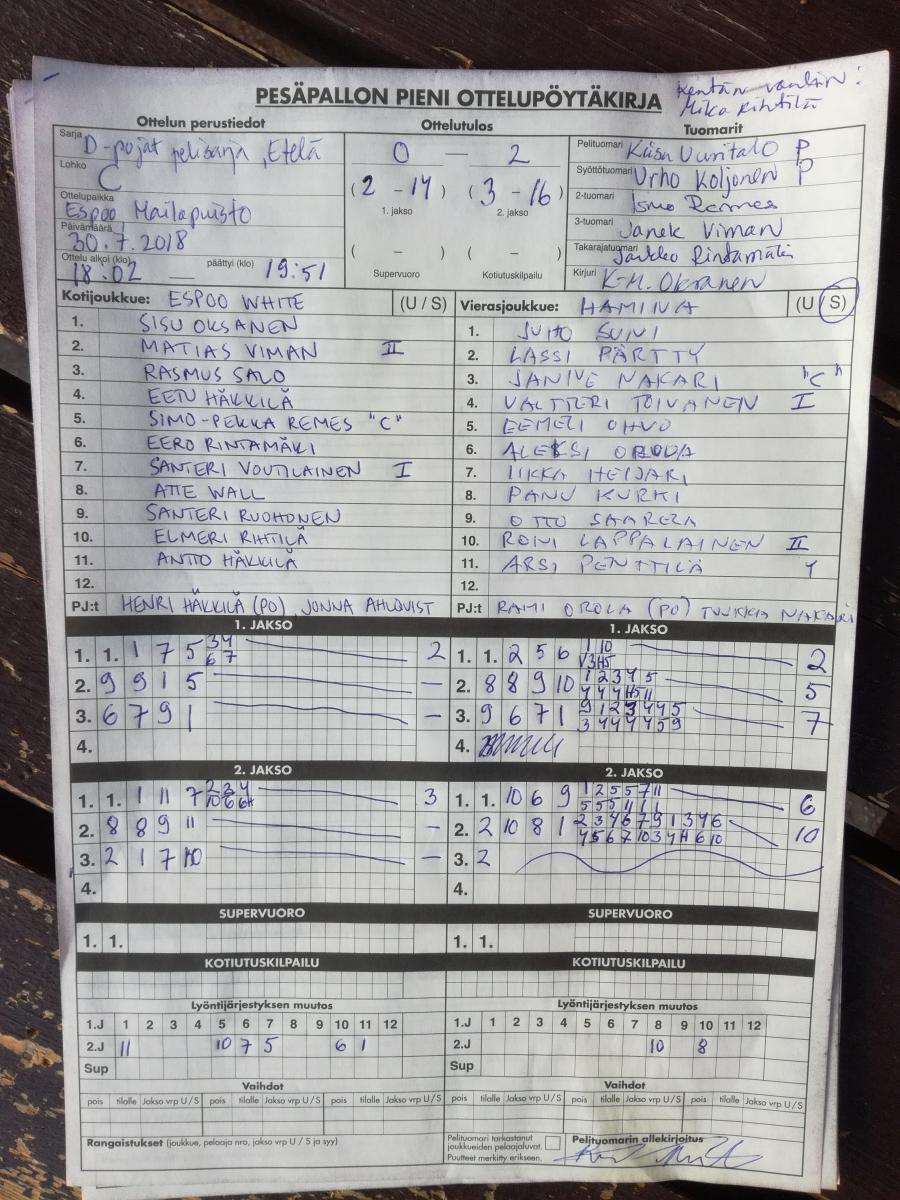 Kentän vanhin:
Mika Rihtilä
PESÄPALLON PIENI OTTELUPÖYTÄKIRJA
Ottelun perustiedot Ottelutulos Tuomarit
Sarja D-pojat pelisarja, Etelä
Lohko C
Ottelupaikka Espoo Mailapuisto
Päivämäärä 30.7.2018
Ottelu alkoi (klo) 18:02 — päättyi (klo) 19:51
0 — 2
(2 - 14) (3 - 16)
1. jakso 2. jakso
( - ) ( - )
Supervuoro Kotiutuskilpailu
Pelituomari Kiisa Uusitalo P
Syöttötuomari Urho Koljonen P
2-tuomari Ismo Remes
3-tuomari Janek Viman
Takarajatuomari Jarkko Rintamäki
Kirjuri K-M. Oksanen
Kotijoukkue: ESPOO WHITE (U / S)
1. SISU OKSANEN
2. MATIAS VIMAN II
3. RASMUS SALO
4. EETU HÄKKILÄ
5. SIMO-PEKKA REMES "C"
6. EERO RINTAMÄKI
7. SANTERI VOUTILAINEN I
8. ATTE WALL
9. SANTERI RUOHONEN
10. ELMERI RIHTILÄ
11. ANTTO HÄKKILÄ
12.
PJ:t HENRI HÄKKILÄ (PO), JONNA AHLQVIST
Vierasjoukkue: HAMINA (U / S)
1. JUHO SUNI
2. LASSI PÄRTTY
3. JANIVE NAKARI "C"
4. VALTTERI TOIVANEN I
5. EEMELI OHVO
6. ALEKSI OROLA
7. IIKKA HEIJARI
8. PANU KURKI
9. OTTO SAARELA
10. RONI LAPPALAINEN II
11. ARSI PENTTILÄ Y
12.
PJ:t RAMI OROLA (PO) TUUKKA NAKARI
1. JAKSO
1. 1. 1 7 5 34 2
67
2. 9 9 1 5 —
3. 6 7 9 1 —
4.
1. JAKSO
1. 1. 2 5 6 1 10 2
2. 8 8 9 10 1 2 3 4 5 5
3. 9 6 7 1 9 1 2 3 4 4 5 7
3 4 4 4 4 5 9
4.
2. JAKSO
1. 1. 1 11 7 2 3 4 3
10 6 6H
2. 8 8 9 11 —
3. 2 1 7 10 —
4.
2. JAKSO
1. 1. 10 6 9 1 2 5 5 7 11 6
5 5 5 11 1 1
2. 2 10 8 1 2 3 4 6 7 9 1 3 4 6 10
4 5 6 7 10 3 4 H 6 10
3. 2
4.
SUPERVUORO SUPERVUORO
1. 1. 1. 1.
KOTIUTUSKILPAILU KOTIUTUSKILPAILU
Lyöntijärjestyksen muutos
1.J 1 2 3 4 5 6 7 8 9 10 11 12
2.J 11 10 7 5 6 1
Sup
Lyöntijärjestyksen muutos
1.J 1 2 3 4 5 6 7 8 9 10 11 12
2.J 10 8
Sup
Vaihdot Vaihdot
pois tilalle Jakso vrp U / S pois tilalle Jakso vrp U / S pois tilalle Jakso vrp U / S
pois tilalle Jakso vrp U / S pois tilalle Jakso vrp U / S pois tilalle Jakso vrp U / S
Rangaistukset (joukkue, pelaaja nro, jakso vrp U / S ja syy)
Pelituomari tarkastanut
joukkueiden pelaajaluvat.
Puutteet merkitty erikseen.
Pelituomarin allekirjoitus